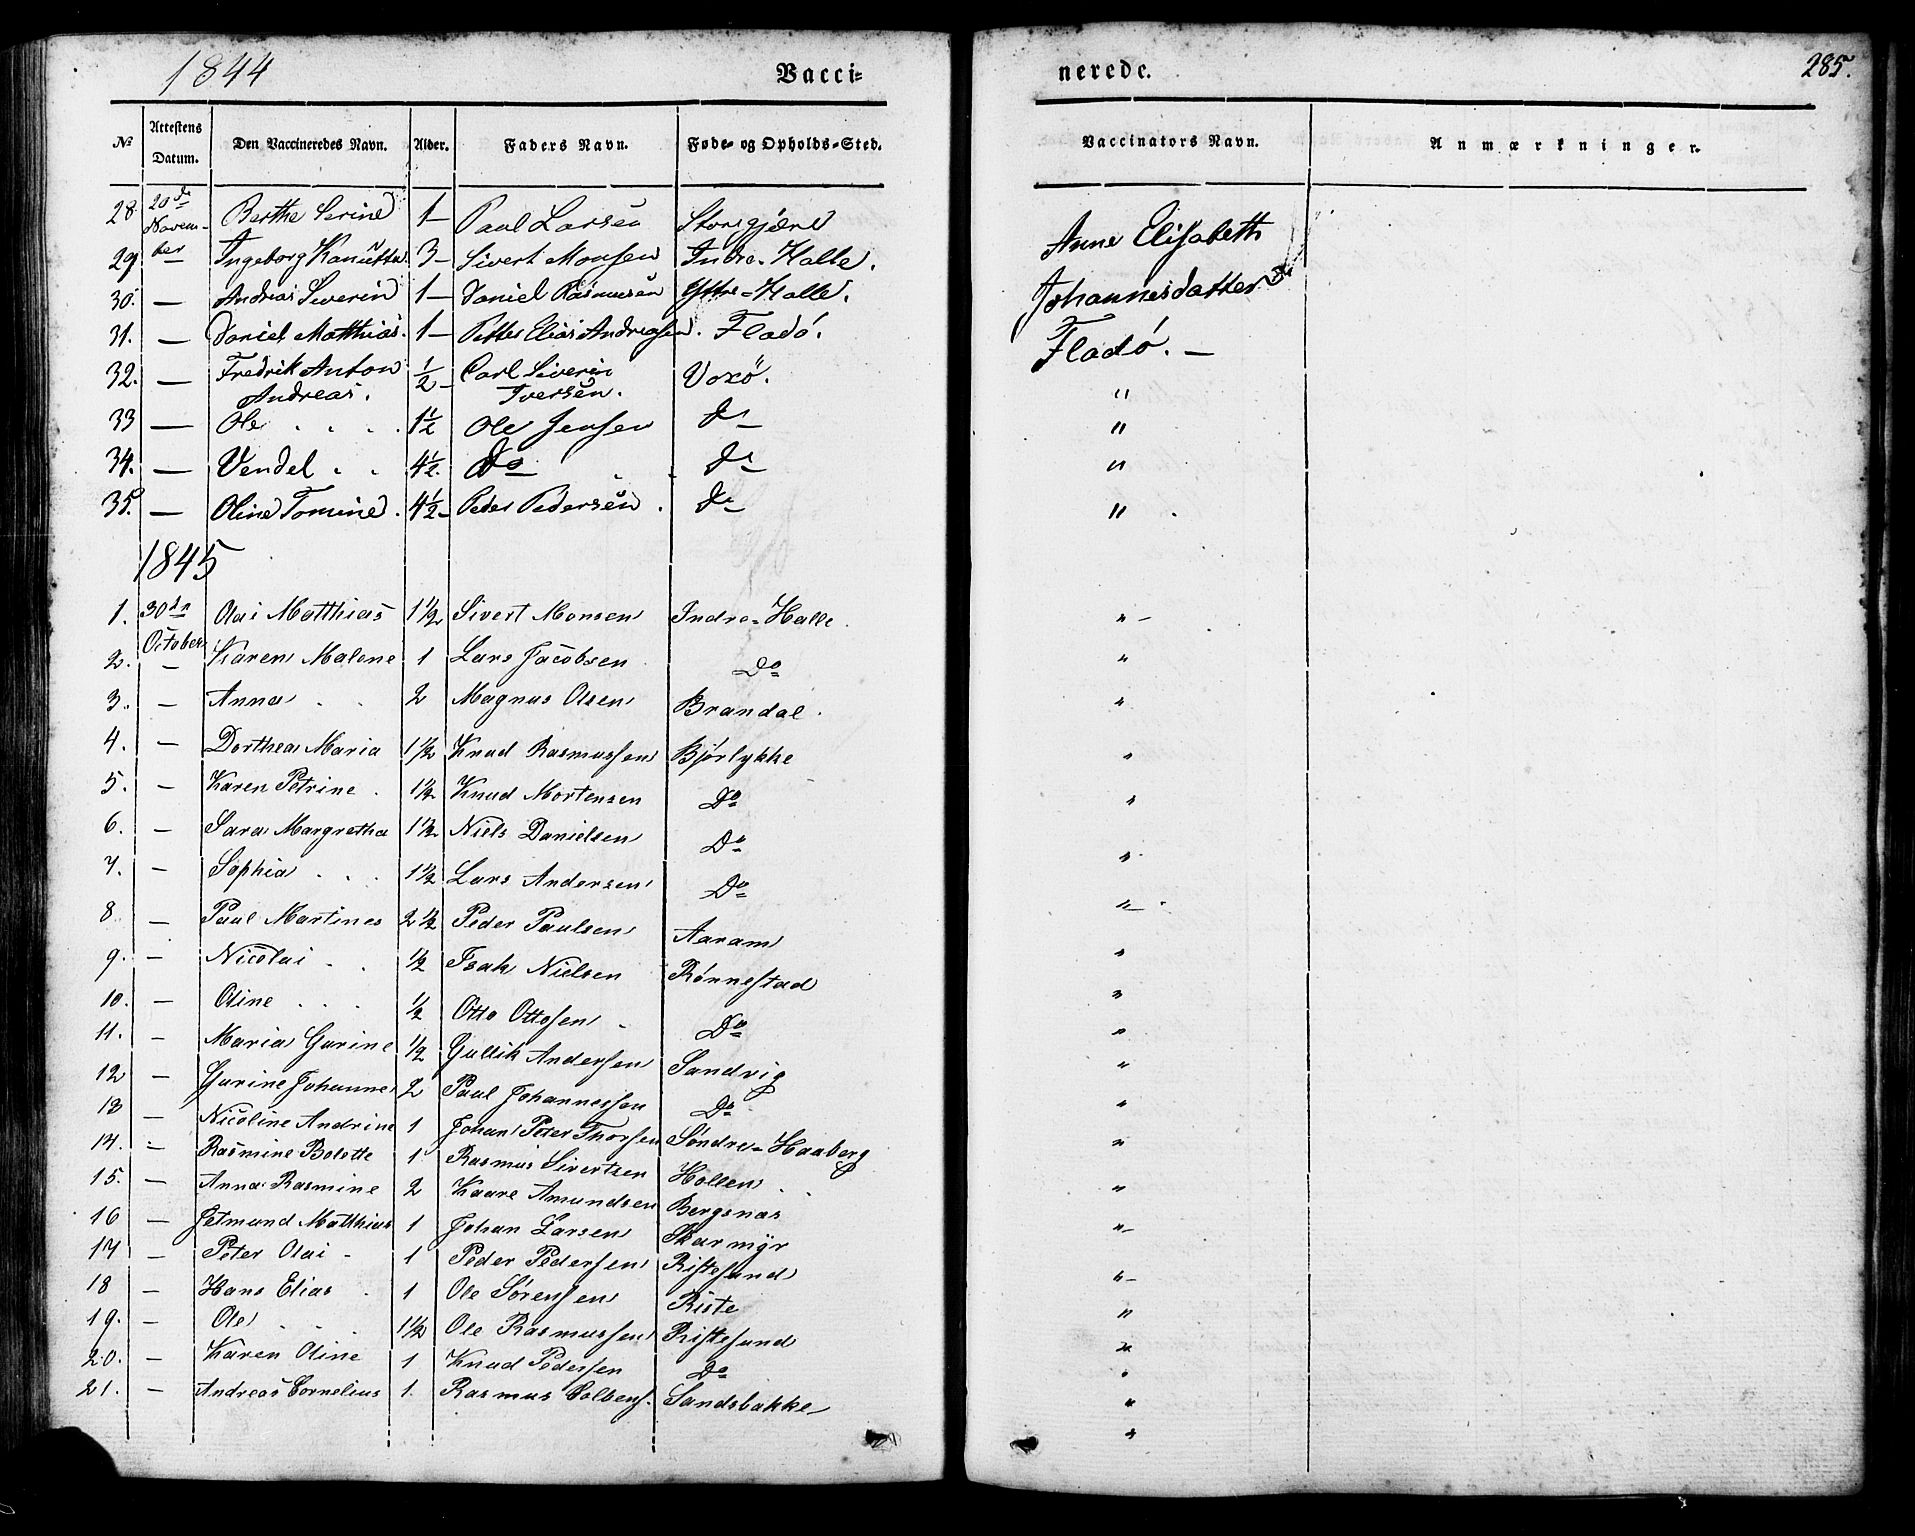 1844 Vacci= nerede. 285.
№ Attestens Datum. Den Vaccineredes Navn. Alder. Faders Navn. Føde- og Opholds-Sted. Vaccinators Navn. Anmærkninger.
28 20de Novem- Berthe Serine 1— Paul Larsen Storegjære Anne Elisabeth
29 ber Ingeborg Kanutta 3— Sivert Monsen Indre-Halle. Johannesdatter
30. — Andreas Severin 1— Daniel Rasmusen Yttre-Halle.
31. — Daniel Matthias. 1— Petter Elias Andreasen. Flaaø. Fladø. —
32. — Fredrik Anton ½— Carl Siverin Voxø. "
Andreas. Iversen.
33 — Ole . . . . 1½ Ole Jensen Do "
34. — Vendel . . 4½. Do . Do "
35. — Oline Tomine . 4½— Peder Pedersen . Do " .
1845
1. 30te Olai Matthias 1½ Sivert Monsen Indre-Halle. " —
October
2. — Karen Malene 1 Lars Jacobsen Do "
3. — Anna . . 2 Magnus Olsen Brandal. "
4. — Dorthea Maria 1½ Knud Rasmussen Bjørlykke "
5. — Karen Petrine . 1½ Knud Mortensen Do "
6. — Sara Margretha 1½ Niels Danielsen Do "
7. — Sophia . . . 1½ Lars Andersen Do "— .
8. — Paul Martines 2½ Peder Paulsen Aaram "
9. — Nicolai . . ½ Isak Nielsen Rønnestad "
10. — Oline . . . ½ Otto Ottosen . Do "
11. — Maria Gurine ½ Gullik Andersen Sandvig "
12 — Gurine Johanne 2 Paul Johannessen Do "
13 — Nicoline Andrine 1 Johan Peter Thorsen Søndre-Haaberg "
14. — Rasmine Bolette 1 Rasmus Sivertsen Hollen . . "
15. — Anna Rasmine 2 Kaare Amundsen Bergsnas "—
16 — Jetmund Matthias 1 Johan Larsen Skarmyr "—
17 — Peter Olai - 1 Peder Pedersen Ristesund "
18 — Hans Elias . 1 Ole Sørensen Riste "
19. — Ole . . . 1½ Ole Rasmussen Ristesund "
20. — Karen Oline 1 Knud Pedersen Do "
21. — Andreas Cornelius 1. Rasmus Colbens. Sandsbakke "